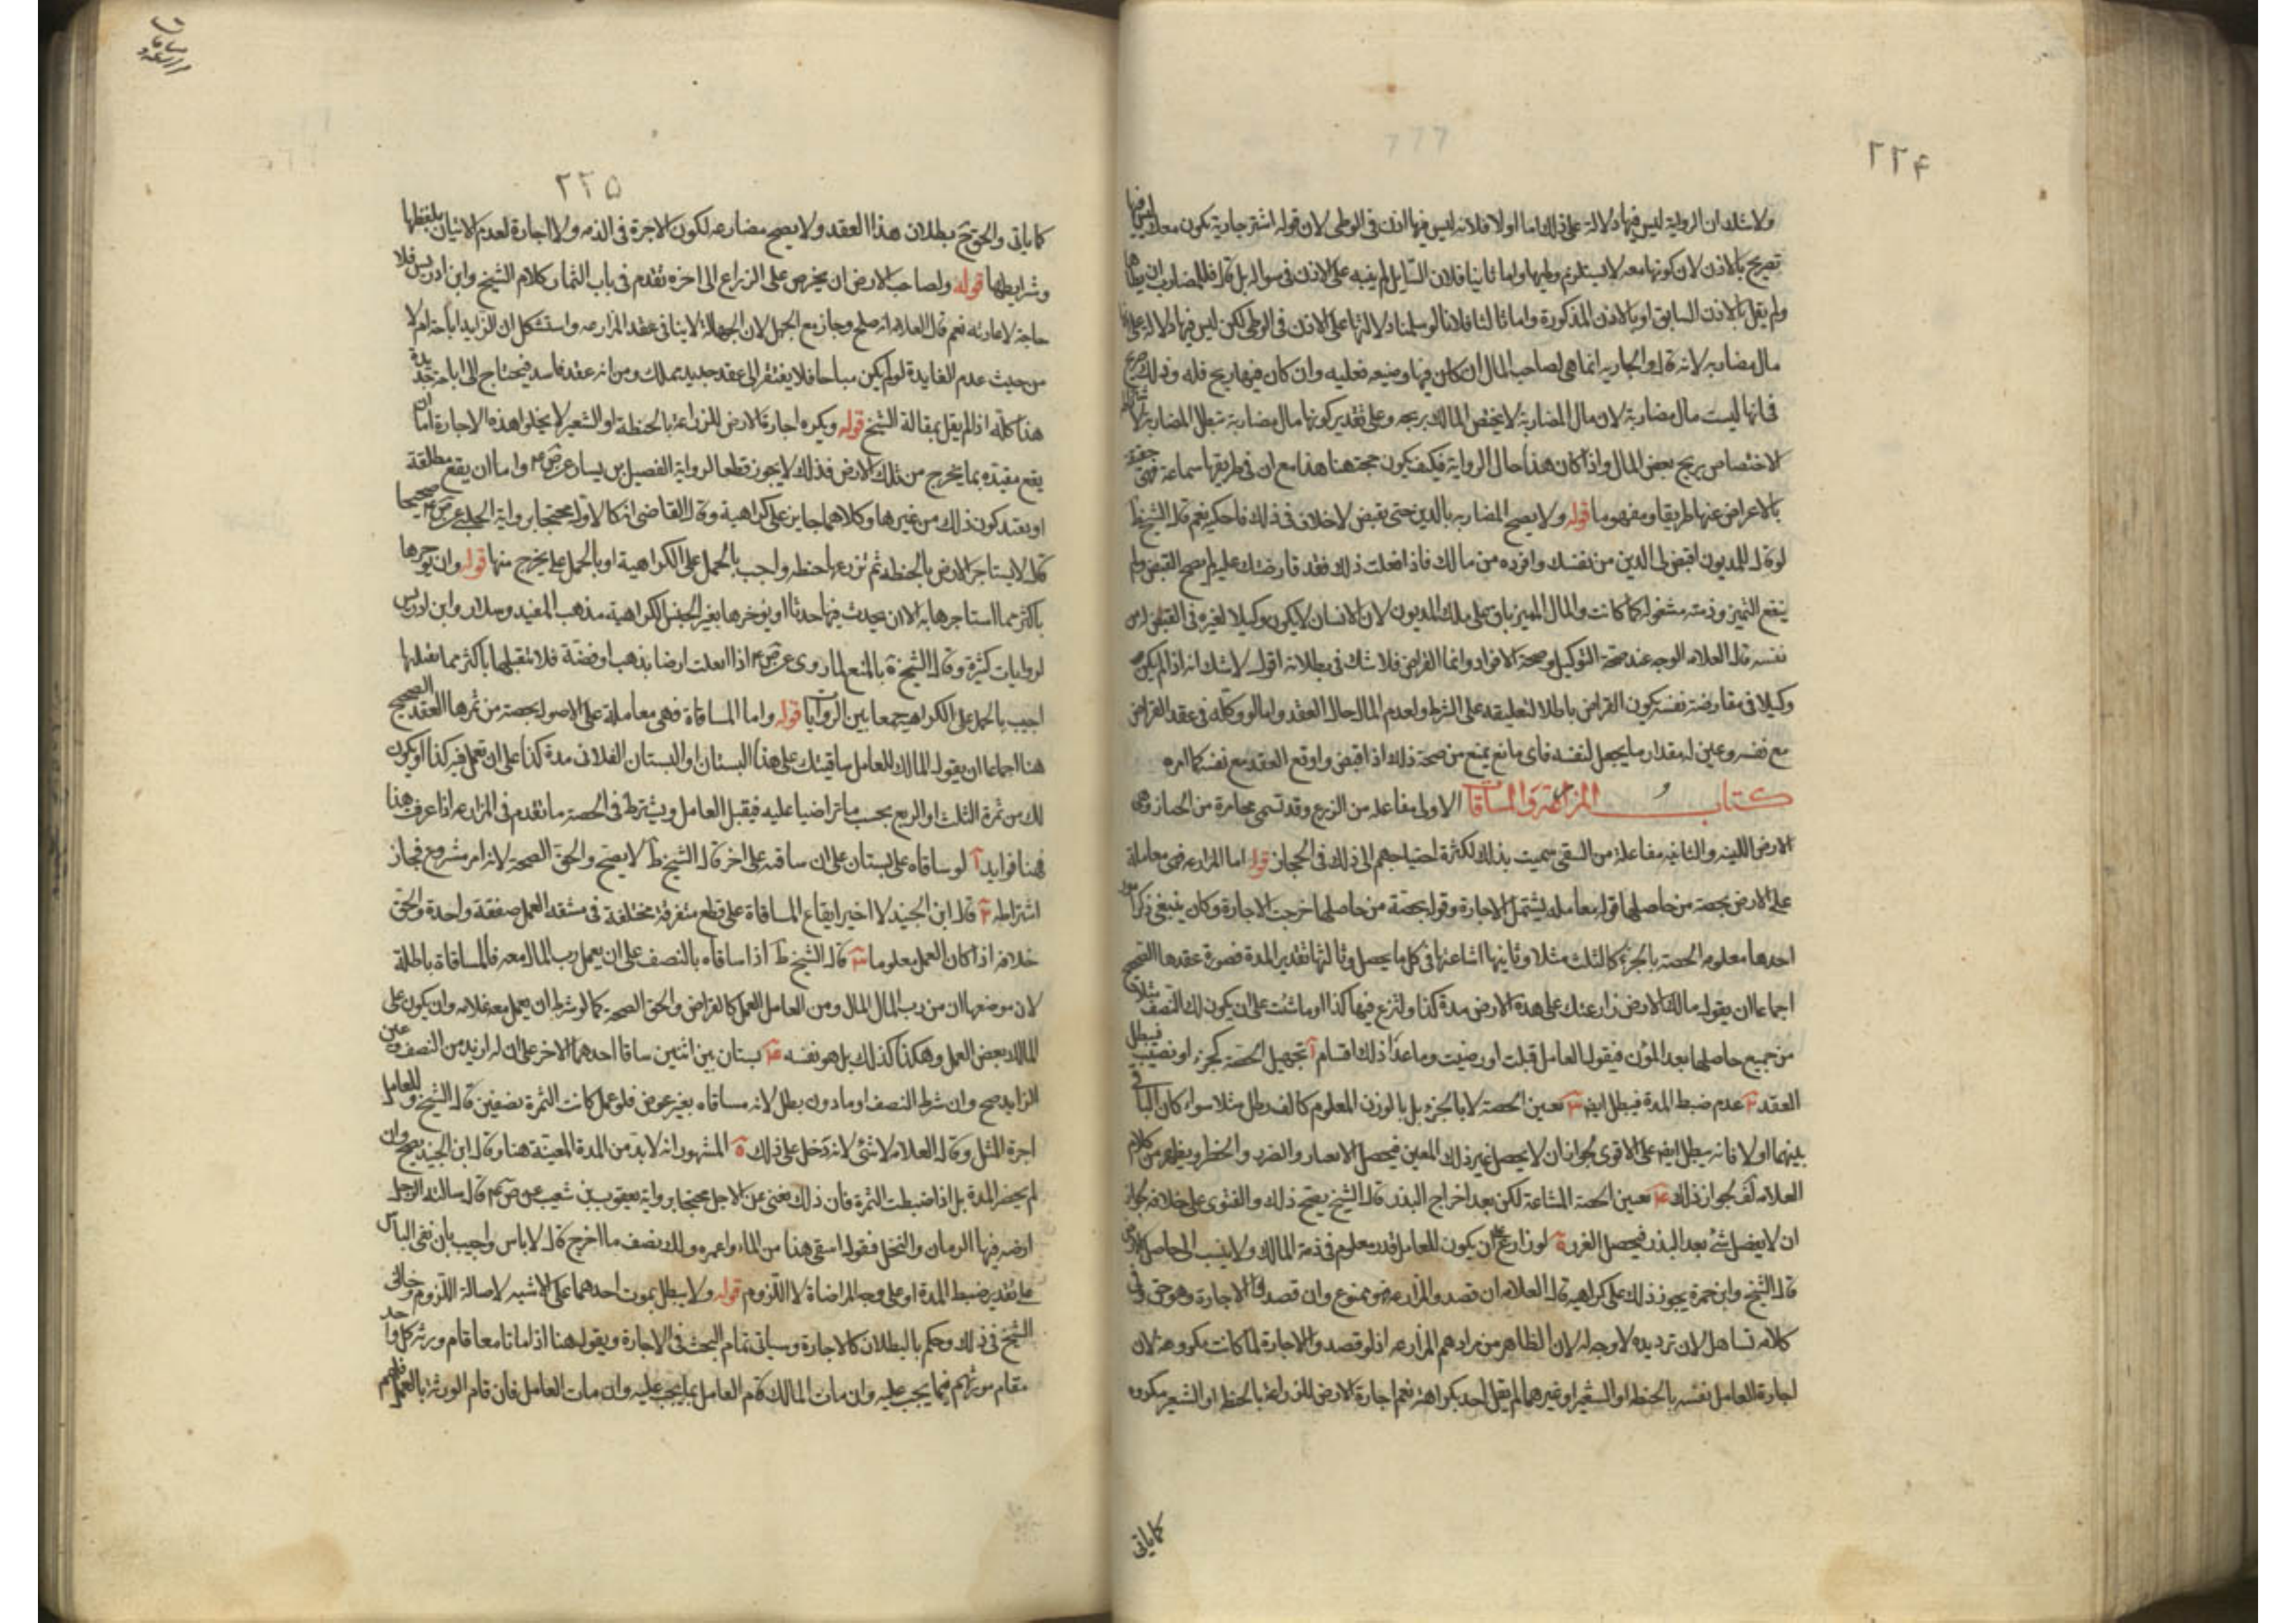 ٢٢۴
ولا شك ان الرواية ليس فيها دلالة على ذلك اما اولا فلانه ليس فيها اذن فى الوطى لان قوله اشتر جارية تكون معك ليس فيها
تصريح بالاذن لان كونها معه لا يستلزم وطيها واما ثانيا فلان السايل لم ينبه على الاذن فى سواله بل قال فللمضارب ان يطاها
ولم يقل بالاذن السابق او بالاذن المذكورة واما ثالثا فلانا لو سلمنا دلالتها على الاذن فى الوطى لكن ليس فيها دلالة على
مال مضاربه لانه قال والجاريه انما هى لصاحب المال ان كان فيها وضيعه فعليه وان كان فيها ربح فله وذلك
فى انها ليست مال مضاربة لان مال المضاربة لا يختص المالك بربحه وعلى تقدير كونها مال مضاربة تبطل المضاربة
الاختصاص بربح بعض المال واذا كان هذا حال الرواية فكيف يكون حجة هنا هذا مع ان فى طريقها سماعة فهى
بالاعراض عنها طريقا ومفهوما قوله ولا يصح المضاربه بالدين حتى يقبض لا خلاف فى ذلك فاحكيه نعم قال الشيخ ط
لو قال للمديون اقبض لى الدين من نفسك وافرده من مالك فاذا فعلت ذلك فقد قارضتك عليه لم يصح القبض ولم
ينفع التميز وذمته مشغولة كما كانت والمال المميز باق على ملك المديون لان الانسان لا يكون وكيلا لغيره فى القبض له من
نفسه قال العلامه الوجه عند صحة التوكيل وصحة الافراد وانما القراض فلا شك فى بطلانه اقول لا شك انه اذا لم يكن
وكيلا فى مقارضة نفسه يكون القراض باطلا لتعليقه على الشرط ولعدم المال حال العقد واما لو وكله فى عقد القراض
مع نفسه وعين له مقدار ما يجعل لنفسه فاى مانع يمنع من صحة ذلك اذا قبض واوقع العقد مع نفسه كما امره
كتاب المزارعة والمساقات الاولى مفاعله من الزرع وقد تسمى مخابرة من الخبار وهى
الارض اللينه والثانيه مفاعلة من السقى سميت بذلك لكثرة احتياجهم الى ذلك فى الحجاز قوله اما المزارعه فهى معاملة
على الارض بحصة من حاصلها قوله معامله يشتمل الاجارة وقوله بحصة من حاصلها خرجت الاجارة وكان ينبغى ذكر امور
احدها معلوميه الحصة بالجزء كالثلث مثلا وثانيها اشاعتها فى كل ما يحصل وثالثها تقدير المدة فصورة عقدها الصحيح
اجماعا ان يقول مالك الارض زارعتك على هذه الارض مدة كذا ولتزرع فيها كذا او ما شئت على ان يكون لك النصف مثلا
من جميع حاصلها بعد المؤن فيقول العامل قبلت او رضيت وما عدا ذلك اقسام آ تجهيل الحصة كجزء او نصيب فيبطل
العقد ٢ عدم ضبط المدة فيبطل ايضا ٣ تعيين الحصة لا بالجزء بل بالوزن المعلوم كالف رطل مثلا سواء كان الباقى
بينهما او لا فانه يبطل ايضا على الاقوى لجواز ان لا يحصل غير ذلك المعين فيحصل الاعسار والضرر والخطر ويظهر من كلام
العلامة لف جواز ذلك ۴ تعيين الحصة المشاعة لكن بعد اخراج البذر قال الشيخ يصح ذلك والفتوى على خلافه لجواز
ان لا يفضل شئ بعد البذر فيحصل الغرر ۵ لو زارع على ان يكون للعامل قدر معلوم فى ذمة المالك ولا ينسب الى حاصل الارض
قال الشيخ وابن حمزة يجوز ذلك على كراهيه قال العلامه ان قصد والمزارعه فهو ممنوع وان قصد والاجارة وهو حق وفى
كلامه تساهل لان ترديده لا وجه له لان الظاهر من مرادهم المزارعه اذ لو قصد والاجارة لما كانت مكروهة لان
اجارة العامل نفسه بالحنطة او الشعير او غيرهما لم يقل احد بكراهته نعم اجارة الارض للزراعة بالحنطة او الشعير مكروه
كما ياتى
٢٢۵
كما ياتى والحق بطلان هذا العقد ولا يصح مضارعه لكون الاجرة فى الذمه ولا اجارة لعدم الاتيان بلفظها
وشرايطها قوله ولصاحب الارض ان يخرص على الزراع الى اخره تقدم فى باب الثمار كلام الشيخ وابن ادريس فلا
حاجة لاعادته نعم قال العلامه انه صلح وجاز مع الجهل لان الجهالة لا ينافى عقد المزارعه واستشكل ان الزايد اباحة ام لا
من حيث عدم الفايدة لو لم يكن مباحا فلا يفتقر الى عقد جديد بملك ومن انه عقد فاسد فيحتاج الى اباحة جديدة
هذا كله اذا لم يقل بمقالة الشيخ قوله ويكره اجارة الارض للزراعة بالحنطة او الشعير لا يخلوا هذه الاجارة اما ان
يقع مقيده بما يخرج من تلك الارض فذلك لا يجوز قطعا لرواية الفضيل بن يسار عن ص م واما ان يقع مطلقة
او يقيد كون ذلك من غيرها وكلاهما جايز على كراهية وقال القاضى انه كالاول محتجا برواية الحلبى عن ص م صحيحا
قال لا يستاجر الارض بالحنطه ثم تزرعها حنطه واجيب بالحمل على الكراهية او بالحمل على يخرج منها قوله وان يوجرها
باكثر مما استاجرها به الا ان يحدث فيها حدثا او يوجرها بغير الجنس الكراهية مذهب المفيد وسلار وابن ادريس
لروايات كثيرة وقال الشيخ ة بالمنع لما روى عن ص م اذا تقبلت ارضا بذهب او فضة فلا تقبلها باكثر مما تقبلتها
اجيب بالحمل على الكراهيه جمعا بين الروايات قوله واما المساقاة فهى معاملة على الاصول بحصة من ثمرها العقد الصحيح
هنا اجماعا ان يقول المالك للعامل ساقيتك على هذا البستان او البستان الفلانى مدة كذا على ان تعمل فيه كذا او يكون
لك من ثمرة الثلث او الربع بحسب ما تراضيا عليه فيقبل العامل ويشترط فى الحصة ما تقدم فى المزارعه اذا عرفت هذا
فهنا فوايد آ لو ساقاه على بستان على ان ساقيه على اخر قال الشيخ ط لا يصح والحق الصحة لانه امر مشروع فجاز
اشتراطه ٢ قال ابن الجنيد لا اختير ايقاع المساقاة على قطع متفرقة مختلفة فى مشقة العمل صفقة واحدة والحق
خلافه اذا كان العمل معلوما ٣ قال الشيخ ط اذا ساقاه بالنصف على ان يعمل رب المال معه فالمساقاة باطلة
لان موضعها ان من رب المال المال ومن العامل العمل كالقراض والحق الصحة كما لو شرط ان يعمل معه غلامه وان يكون على
المالك بعض العمل وهكذا كذلك بل هو نفسه ۴ بستان بين اثنين ساقا احدهما الاخر على ان له ازيد من النصف وعين
الزايد صح وان شرط النصف او ما دونه بطل لانه مساقاه بغير عوض فلو عمل كانت الثمرة نصفين قال الشيخ وللعامل
اجرة المثل وقال العلامه لا شئ لانه دخل على ذلك ۵ المشهور انه لا بد من المدة المعينة هنا وقال ابن الجنيد يصح وان
لم يحضر المدة بل اذا ضبطت الثمرة فان ذلك يغنى عن الاجل محتجا برواية يعقوب بن شعيب عن ص م قال سالته الرجل
ارضه فيها الرمان والنخل فيقول اسقى هذا من الماء واعمره ولك نصف ما اخرج قال لا باس واجيب بان نفى الباس
على تقدير ضبط المدة او على وجه المراضاة لا اللزوم قوله ولا يبطل بموت احدهما على الاشبه لاصالة اللزوم وخالف
الشيخ فى ذلك وحكم بالبطلان كالاجارة وسياتى تمام البحث فى الاجارة ويقول هنا اذا ماتا معا قام ورثة كل واحد
مقام مورثهم فيما يجب عليه وان مات المالك قام العامل بما يجب عليه وان مات العامل فان قام الورثة بالعمل فلهم